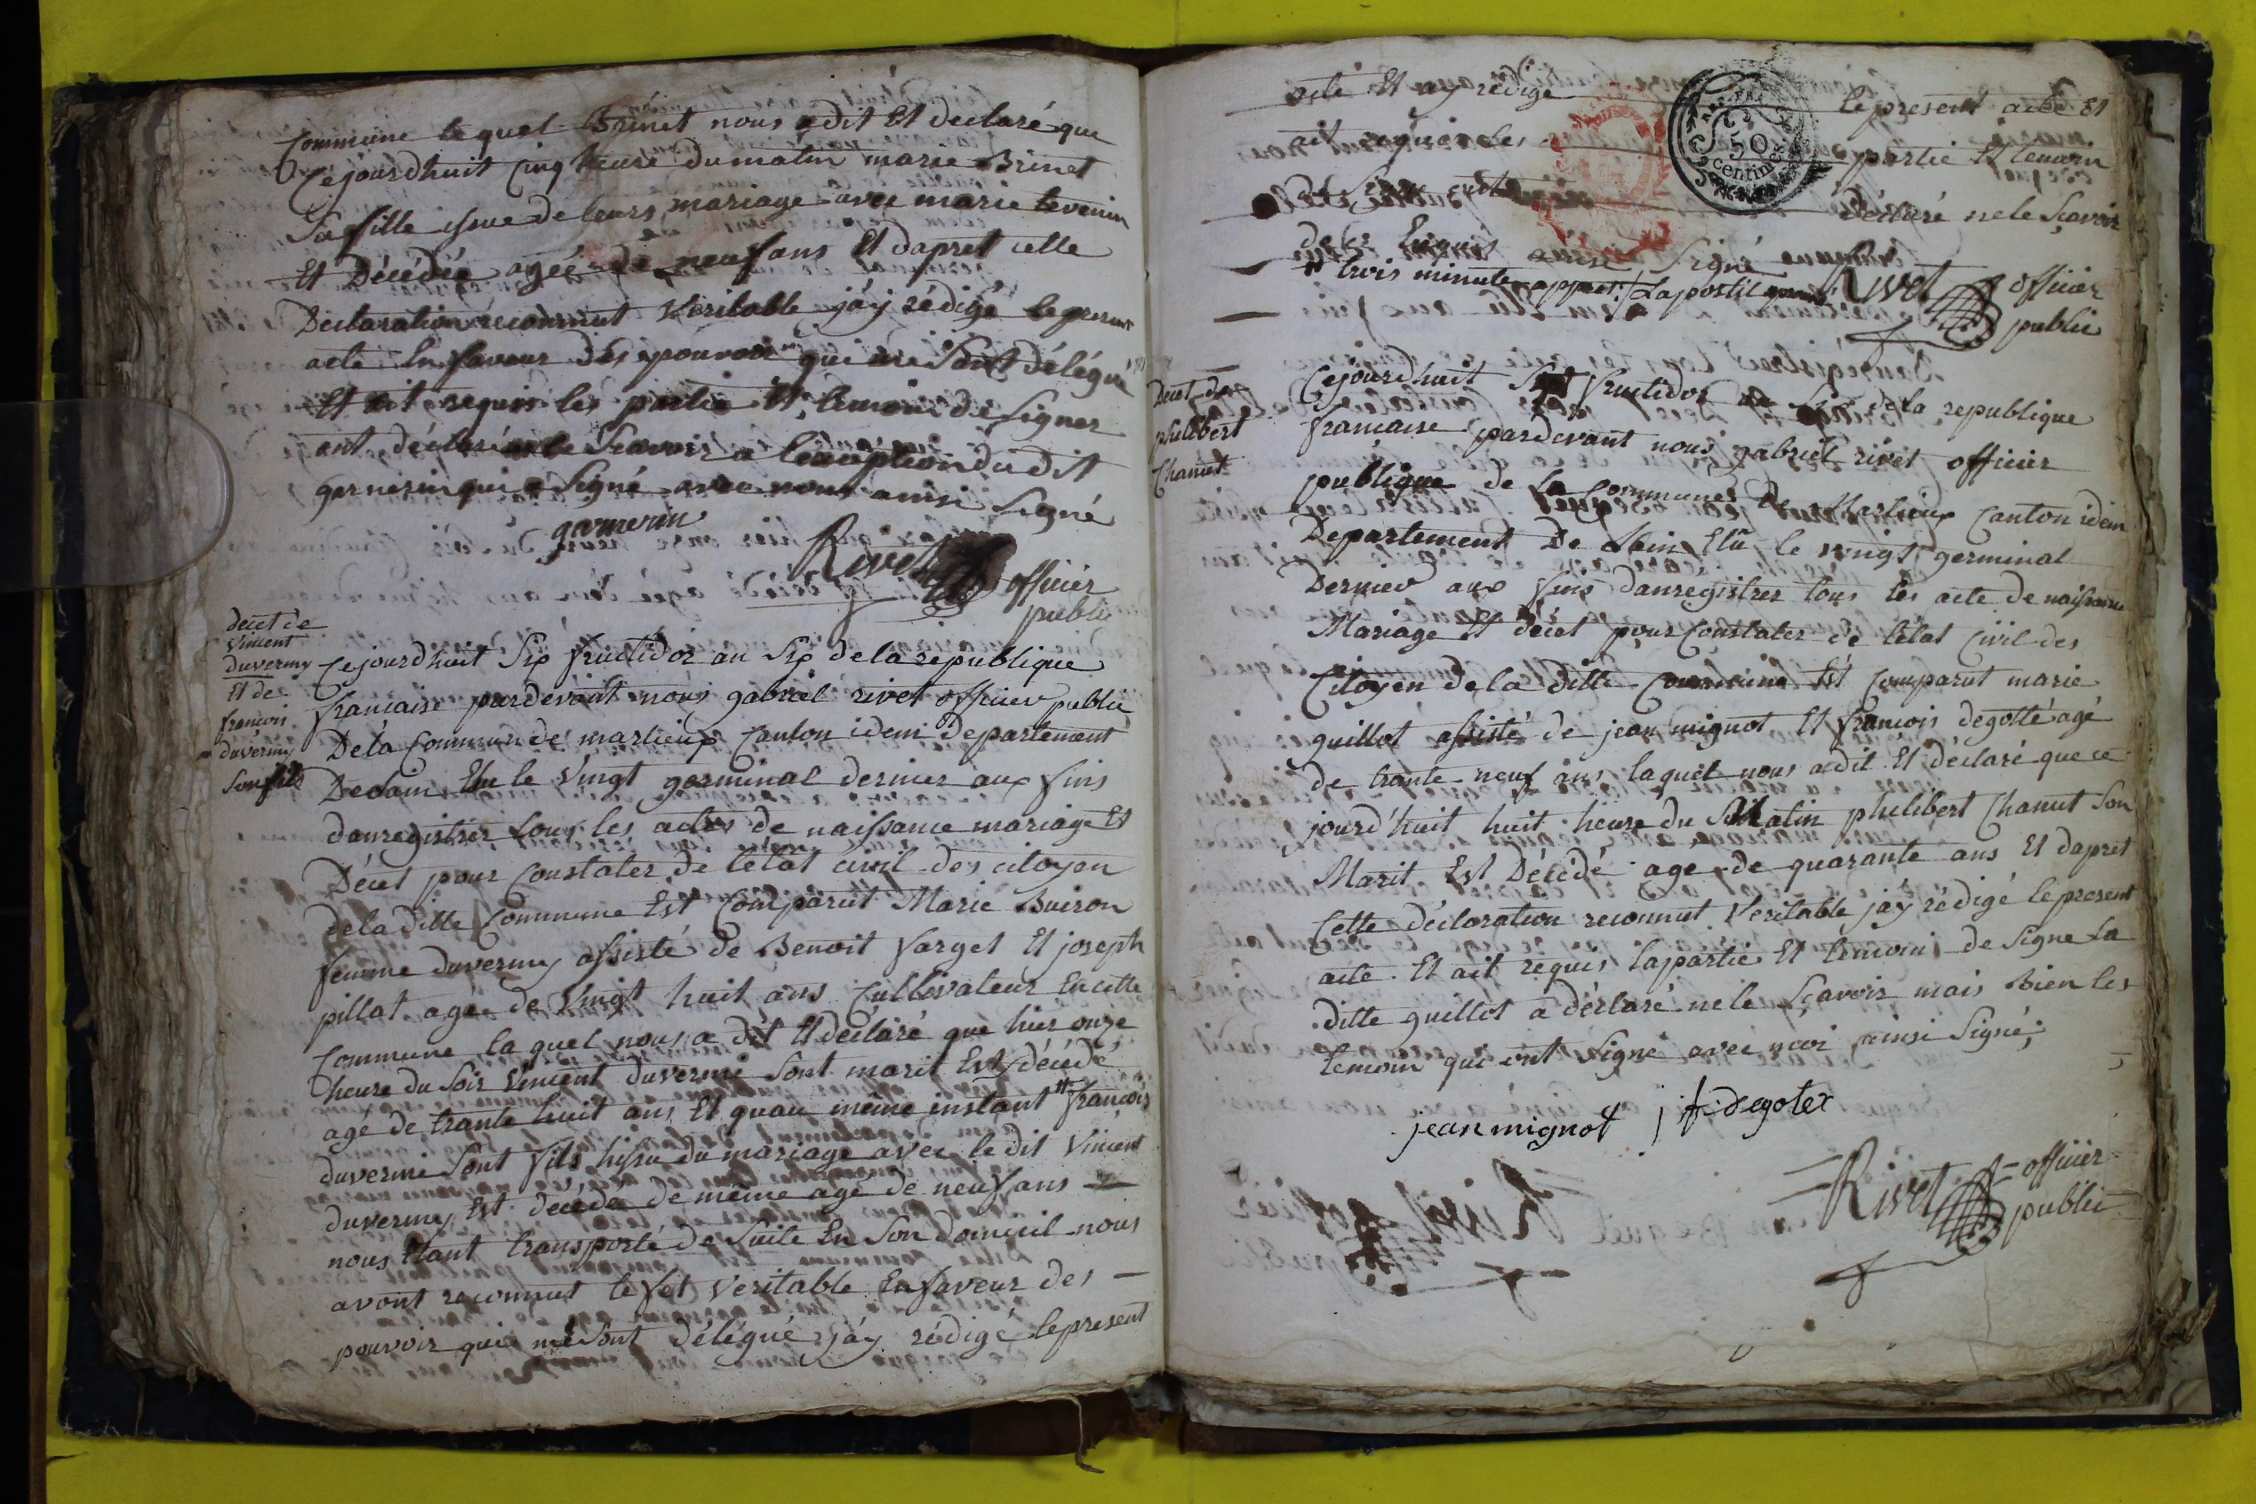 Commune le quel Brinet nous a dit Et declaré que
Cejourdhuit Cinq heure du matin marie Brinet
Sa fille issue de leurs mariage avec marie tevenin
Et Décédée agée de neuf ans Et dapret cette
Declaration reconnut Veritable jáy rédigé le present
acte En faveur des pouvoir qui me Sont délégué
Et ait requis les partie Et temoin de Signer
ont déclaré ne le Scavoir a l'exception du dit
garnerin qui a Signé avec nous ainsi Signé
garnerin
Rivet officier
public
decet de
Vincent
duverny
Et de
francois
duverny
Son fils
Cejourdhuit Six fructidor an Six de la republique
francaise pardevant nous gabriel rivet officier public
De la Commune de marlieux Canton idem Departement
De Lain Elu le Vingt germinal dernier aux fins
danregistrer tous les actes de naissance mariage Et
Décet pour Constater de letat civil des citoyen
de la ditte Commune Est Comparut Marie Buiron
femme duverny assisté de Benoit Varget Et joseph
pillat agé de Vingt huit ans Cultivateur En cette
Commune la quel nous a dit Et déclaré que hier onze
heure du Soir Vincent duverni Sont marit Est décédé
agé de trante huit ans Et quau même instant # francois
duverni Sont fils hissu du mariage avec le dit Vincent
duverny Est décédé de même agé de neuf ans
nous Etant transporté de Suite En Son domicil nous
avont reconnut le fet Veritable En faveur des
pouvoir qui me Sont délégué jáy rédigé le present
acte Et ay rédigé le present acte Et
ait requis les partie Et temoin
de Signer ont déclaré ne le Scavoir
de ce Enquis ainsi Signé
# trois minute appret / Lapostil Rivet officier
public
50
centimes
Decet de
philibert
Chanut
Cejourdhuit Sept fructidor an Six de la republique
francaise pardevant nous gabriel rivet officier
publique de la Commune De Marlieux Canton idem
Departement De Lain Elu le vingt germinal
Dernier aux fins danregistrer tous les acte de naissance
Mariage Et décet pour Constater de létat Civil des
Citoyen de la ditte Commune Est Comparut marie
guillot assisté de jean mignot Et francois degotté agé
de trante neuf ans laquel nous a dit Et déclaré que ce
jourd'huit huit heure du Matin philibert Chanut Son
Marit Est Décédé age de quarante ans Et dapret
Cette déclaration reconnut Veritable jáy rédigé le present
acte Et ait requis la partie Et temoin de Signe La
ditte guillot a déclaré ne le Sçavoir mais Bien les
temoin qui ont Signé avec moi ainsi Signé;
jean mignot f degotex
Rivet officier
public